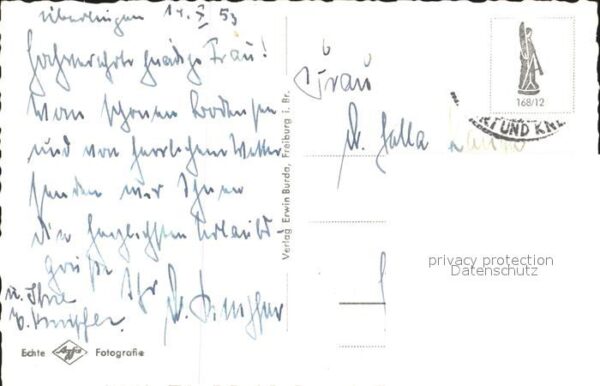 Überlingen 14. 5 53
Hochverehrte gnädige Frau!
Vom schönen Bodensee
und von herrlichem Wetter
senden wir Ihnen
die herzlichsten Urlaubs-
grüße Ihr Dr.
u. Ihre
Echte Agfa Fotografie
Verlag Erwin Burda, Freiburg i. Br.
Frau
Dr. Halla
168/12
UND
privacy protection
Datenschutz